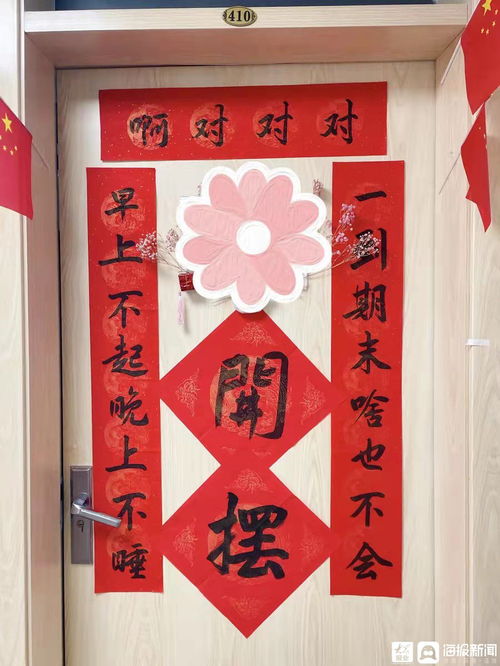 410
啊对对对
早上不起晚上不睡
一到期末啥也不会
開
摆
海报新闻